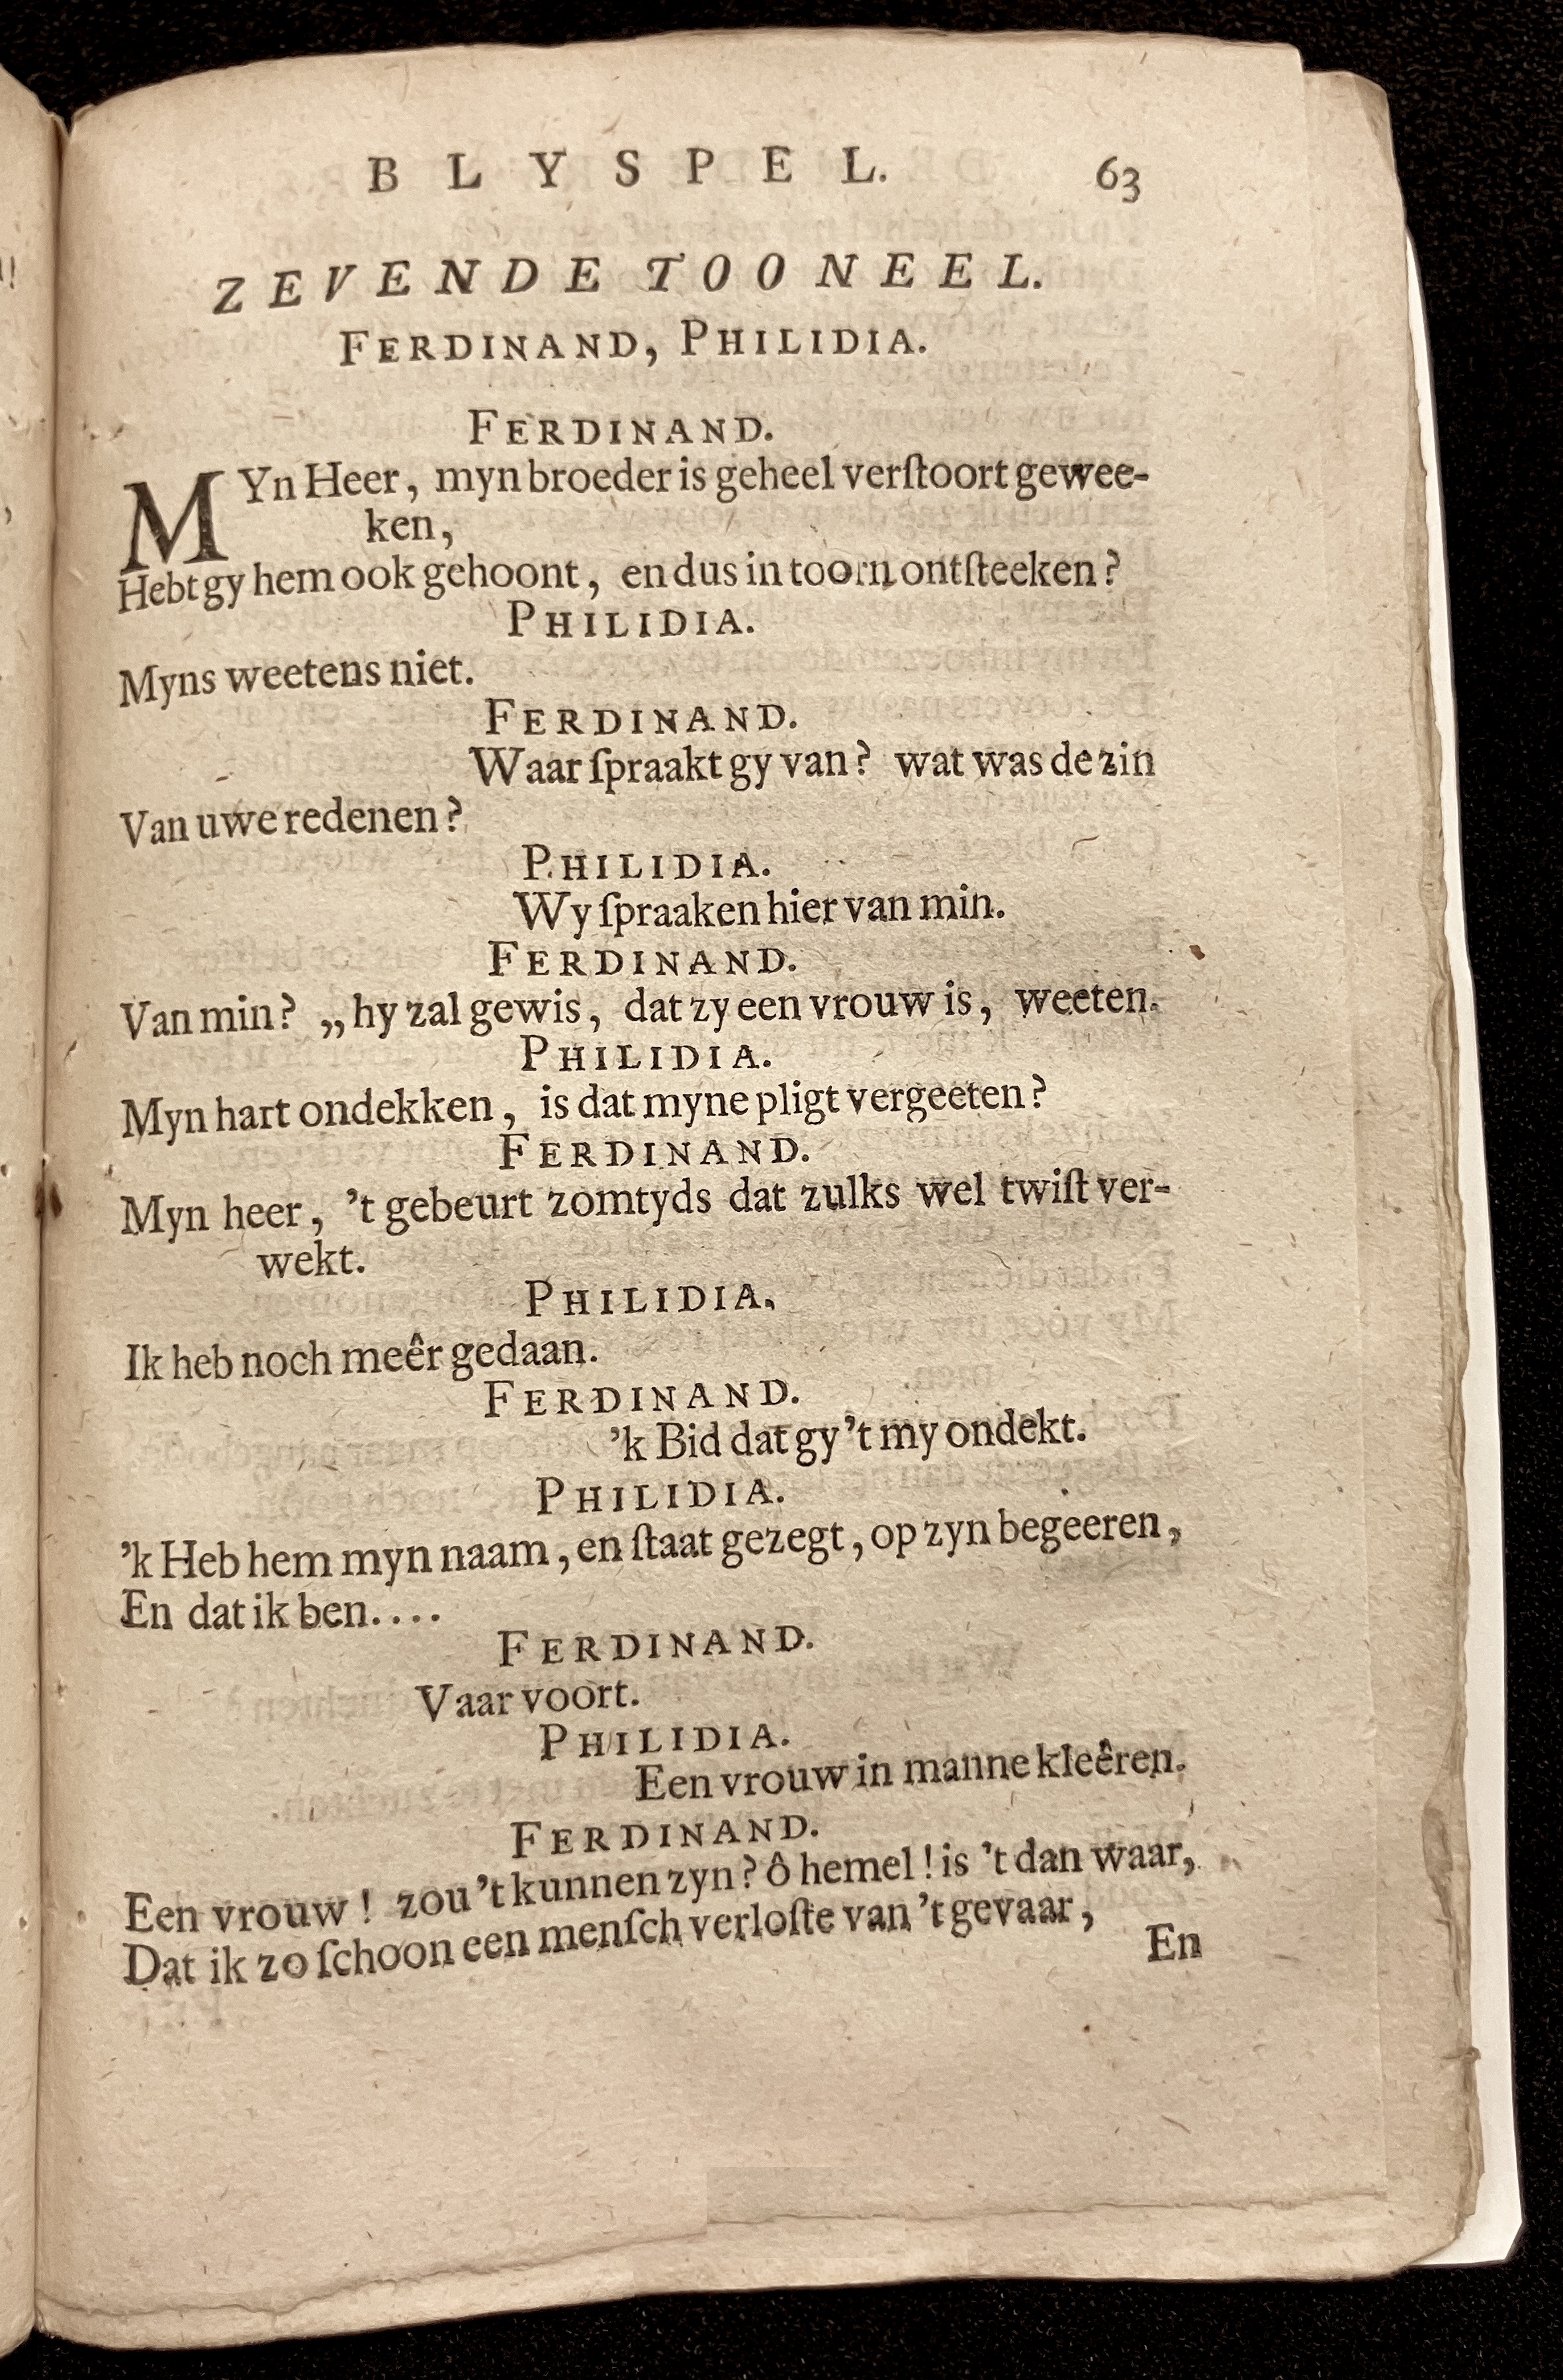 BLYSPEL. 63
ZEVENDE TOONEEL.
FERDINAND, PHILIDIA.
FERDINAND.
MYn Heer, myn broeder is geheel verſtoort gewee-
ken,
Hebt gy hem ook gehoont, en dus in toorn ontſteeken?
PHILIDIA.
Myns weetens niet.
FERDINAND.
Waar ſpraakt gy van? wat was de zin
Van uwe redenen?
PHILIDIA.
Wy ſpraaken hier van min.
FERDINAND.
Van min? „hy zal gewis, dat zy een vrouw is, weeten.
PHILIDIA.
Myn hart ondekken, is dat myne pligt vergeeten?
FERDINAND.
Myn heer, 't gebeurt zomtyds dat zulks wel twiſt ver-
wekt.
PHILIDIA.
Ik heb noch meêr gedaan.
FERDINAND.
'k Bid dat gy 't my ondekt.
PHILIDIA.
'k Heb hem myn naam, en ſtaat gezegt, op zyn begeeren,
En dat ik ben....
FERDINAND.
Vaar voort.
PHILIDIA.
Een vrouw in manne kleêren.
FERDINAND.
Een vrouw! zou 't kunnen zyn? ô hemel! is 't dan waar,
Dat ik zo ſchoon een menſch verloſte van 't gevaar,
En